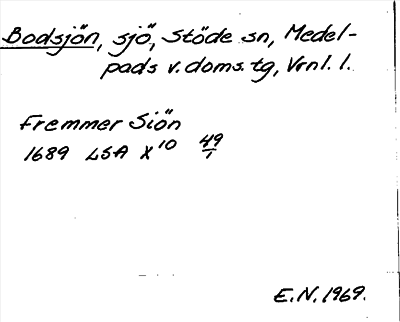 Bodsjön, sjö, Stöde sn, Medel-
pads v. doms. tg, Vrnl. l.
Fremmer Siön
1689 LSA X10 49/1
E.N. 1969.